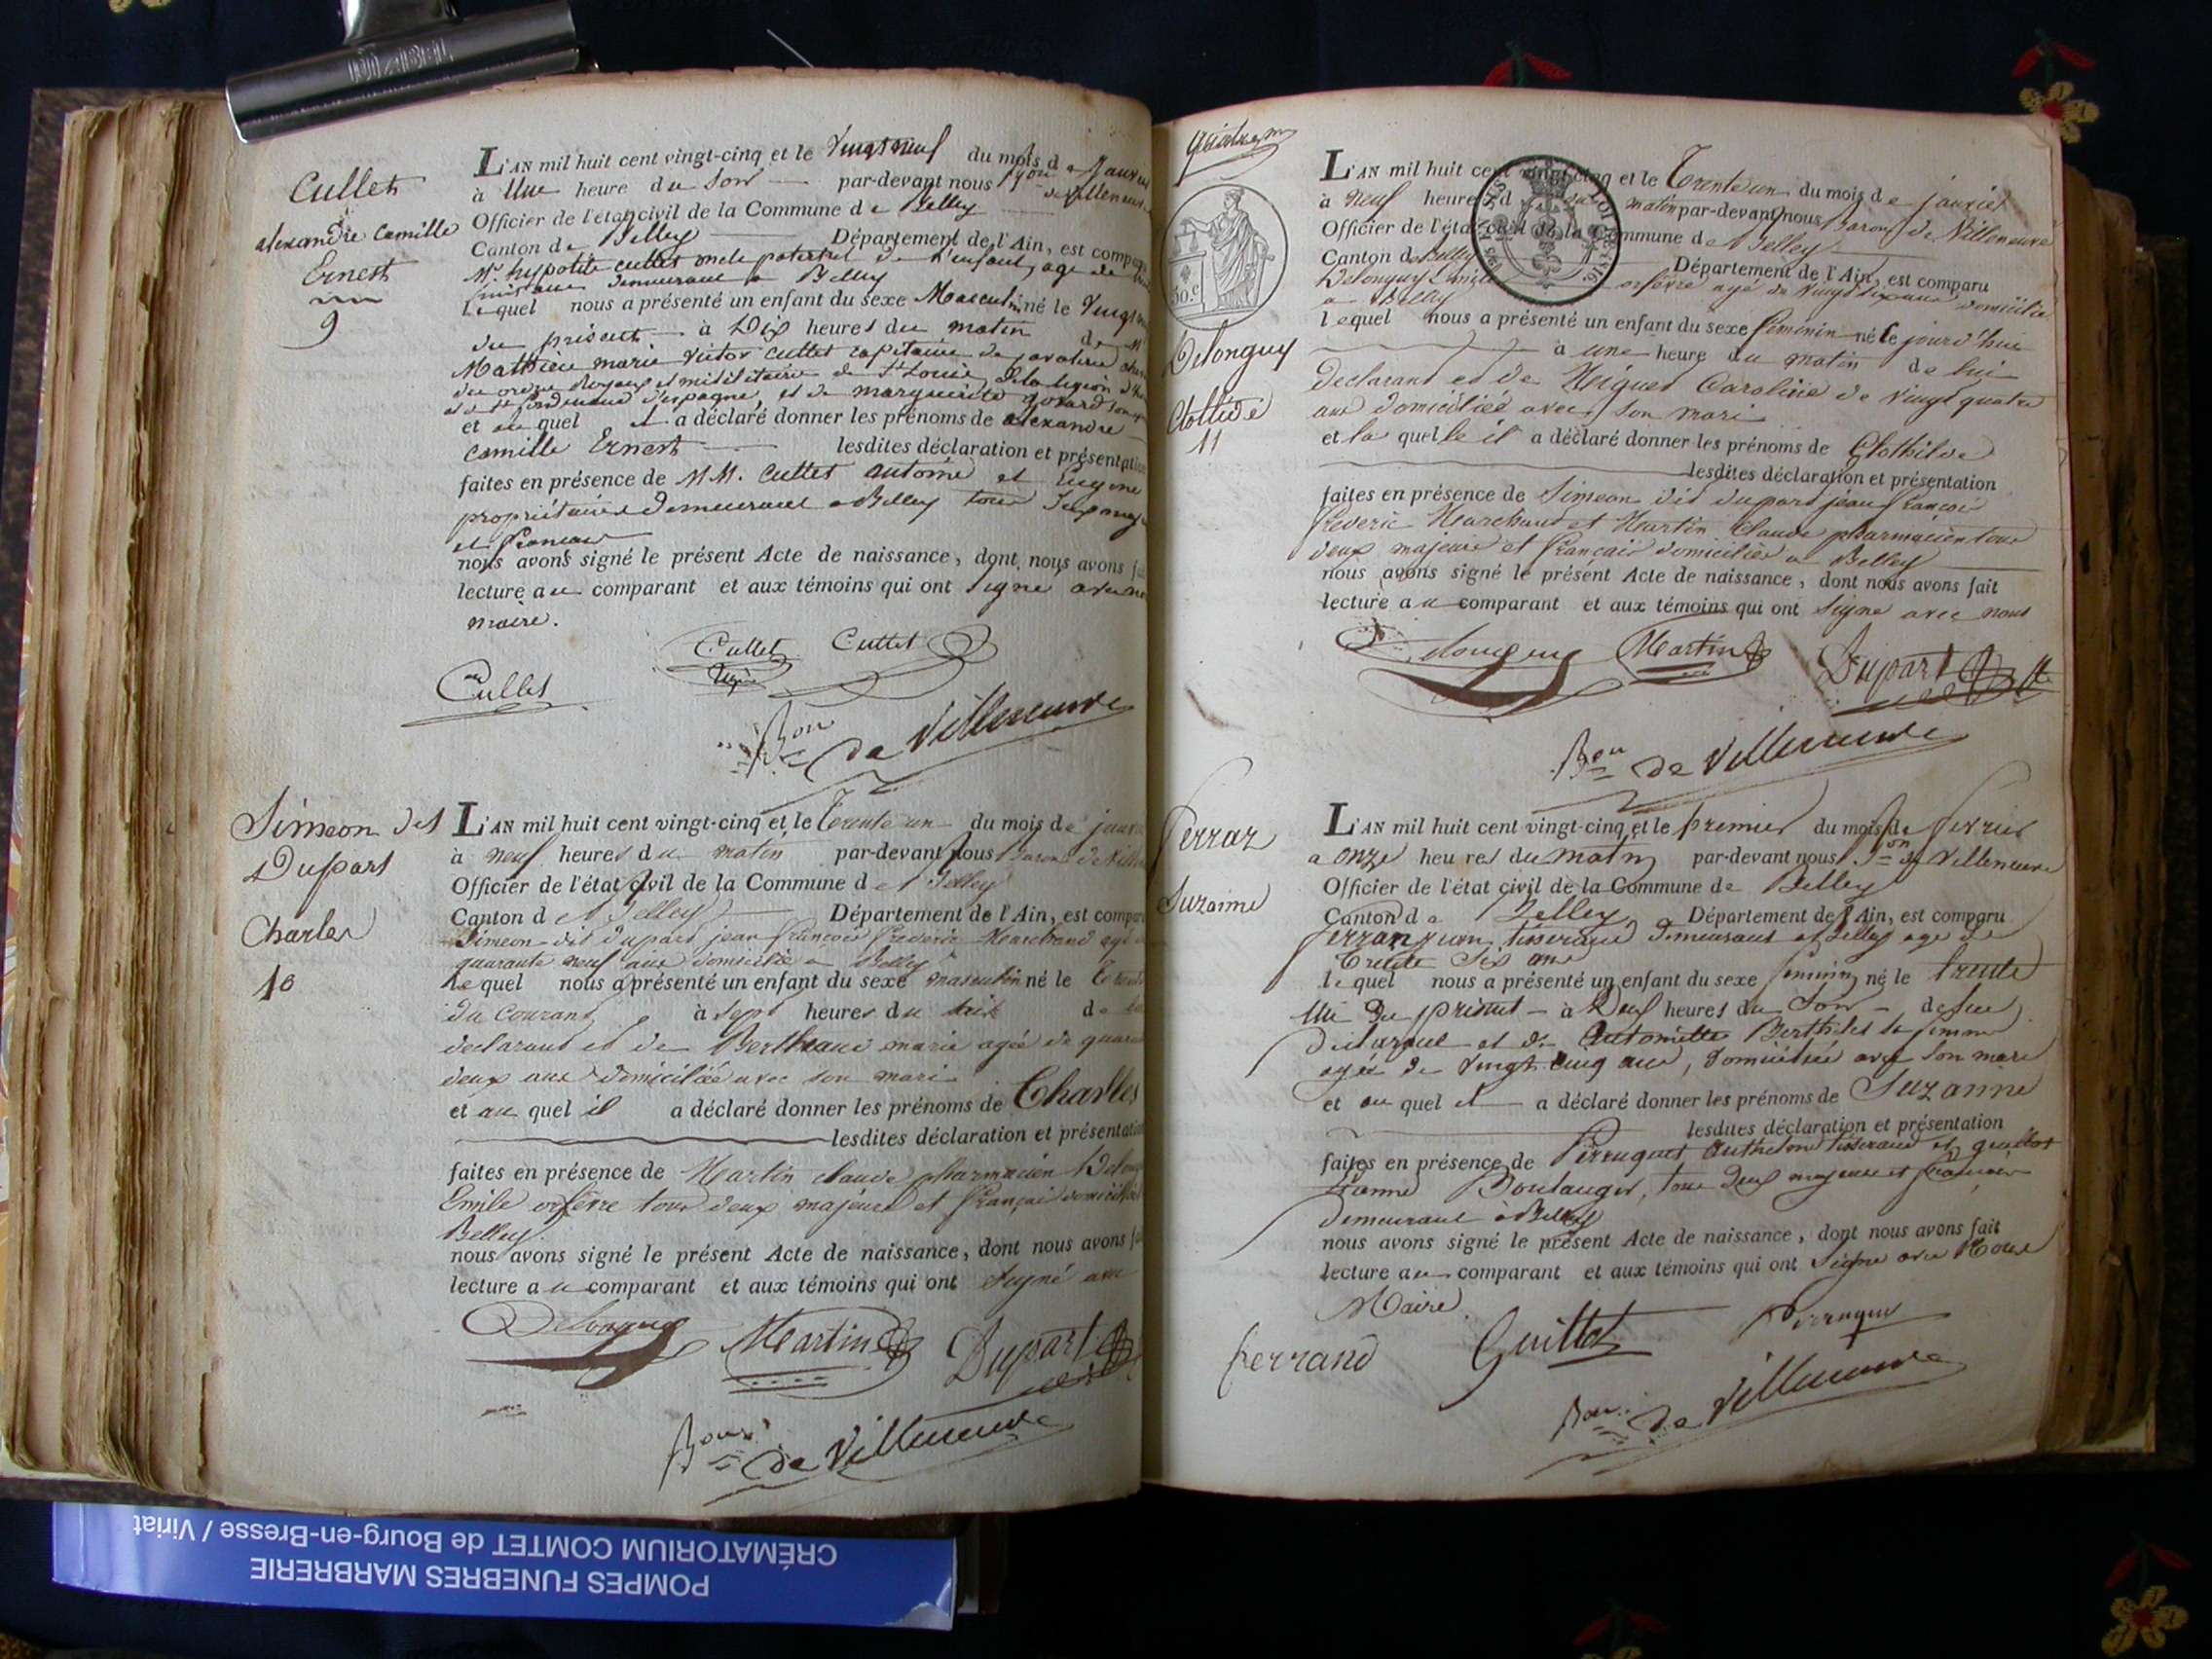 Cullet
alexandre Camille
Ernest
9
L'AN mil huit cent vingt-cinq et le Vingt neuf du mois de Janvier
à Une heure du Soir par-devant nous Bon de Villeneuve
Officier de l'état civil de la Commune de Belley
Canton de Belley Département de l'Ain, est comparu
Mr hypolite Cullet oncle paternel de l'enfant, age de
ans demeurant a Belley
lequel nous a présenté un enfant du sexe Masculin né le Vingt
du présent à Dix heures du matin de Mr
Mathieu marie victor Cullet capitaine de cavalerie
des ordres Royaux et militaire de St Louis, de la legion
et de St ferdinand d'espagne, et de marguerite
et au quel il a déclaré donner les prénoms de alexandre
Camille Ernest lesdites déclaration et présentation
faites en présence de MM. Cullet antoine et Eugene
propriétaires Demeurant a Belley tous Deux majeurs
et francais
nous avons signé le présent Acte de naissance, dont nous avons fait
lecture au comparant et aux témoins qui ont signé avec nous
maire.
Cullet Cullet
Cullet
Bon de Villeneuve
Simeon dit
Dupart
Charles
10
L'AN mil huit cent vingt-cinq et le Trente un du mois de janvier
à neuf heures du matin par-devant nous Baron de Villeneuve
Officier de l'état civil de la Commune de Belley
Canton de Belley Département de l'Ain, est comparu
Simeon dit dupart jean francois frederic Marchand agé de
quarante neuf ans domicilié a Belley
lequel nous a présenté un enfant du sexe masculin né le Trente
du Courant à sept heures du soir de lui
declarant et de Berthrand marie agée de quarante
deux ans domiciliée avec son mari
et au quel il a déclaré donner les prénoms de Charles
lesdites déclaration et présentation
faites en présence de Martin claude pharmacien Delonguy
Emile orfévre tous deux majeurs et français domiciliés
Belley.
nous avons signé le présent Acte de naissance, dont nous avons fait
lecture au comparant et aux témoins qui ont signé avec
Delonguy Martin Dupart
Bon de Villeneuve
50.c
Delonguy
Clotilde
11
L'AN mil huit cent vingt-cinq et le Trente un du mois de janvier
à neuf heures du matin par-devant nous Baron de Villeneuve
Officier de l'état civil de la Commune de Belley
Canton de Belley Département de l'Ain, est comparu
Delonguy Emile orfévre agé de vingt six ans domicilié
a Belley
lequel nous a présenté un enfant du sexe féminin né le jourd'hui
à une heure du matin de lui
declarant et de Miguet Caroline de vingt quatre
ans domiciliée avec son mari
et la quelle il a déclaré donner les prénoms de Clothilde
lesdites déclaration et présentation
faites en présence de Simeon dit dupart jean francois
frederic Marchand et Martin Claude pharmacien tous
deux majeurs et francais domiciliés a Belley
nous avons signé le présent Acte de naissance, dont nous avons fait
lecture au comparant et aux témoins qui ont signé avec nous
Delonguy Martin Dupart
Bon de Villeneuve
Ferraz
Suzanne
L'AN mil huit cent vingt-cinq et le premier du mois de fevrier
a onze heures du matin par-devant nous Bon de Villeneuve
Officier de l'état civil de la Commune de Belley
Canton de Belley Département de l'Ain, est comparu
tisserand demeurant a Belley age de
Trente Six ans
lequel nous a présenté un enfant du sexe feminin né le trente
un du présent à Deux heures du Soir de lui
Declarant et de Antoinette Berthilet sa femme
agée de vingt cinq ans, domiciliée avec son mari
et au quel il a déclaré donner les prénoms de Suzanne
lesdites déclaration et présentation
faites en présence de Perruquet Anthelme tisserand et guillot
Boulanger, tous deux majeurs et français
demeurant à Belley
nous avons signé le présent Acte de naissance, dont nous avons fait
lecture au comparant et aux témoins qui ont signé avec Nous
Maire.
ferrand Guillot Perruquet
Bon de Villeneuve
POMPES FUNEBRES MARBRERIE
CRÉMATORIUM COMTET de Bourg-en-Bresse / Viriat